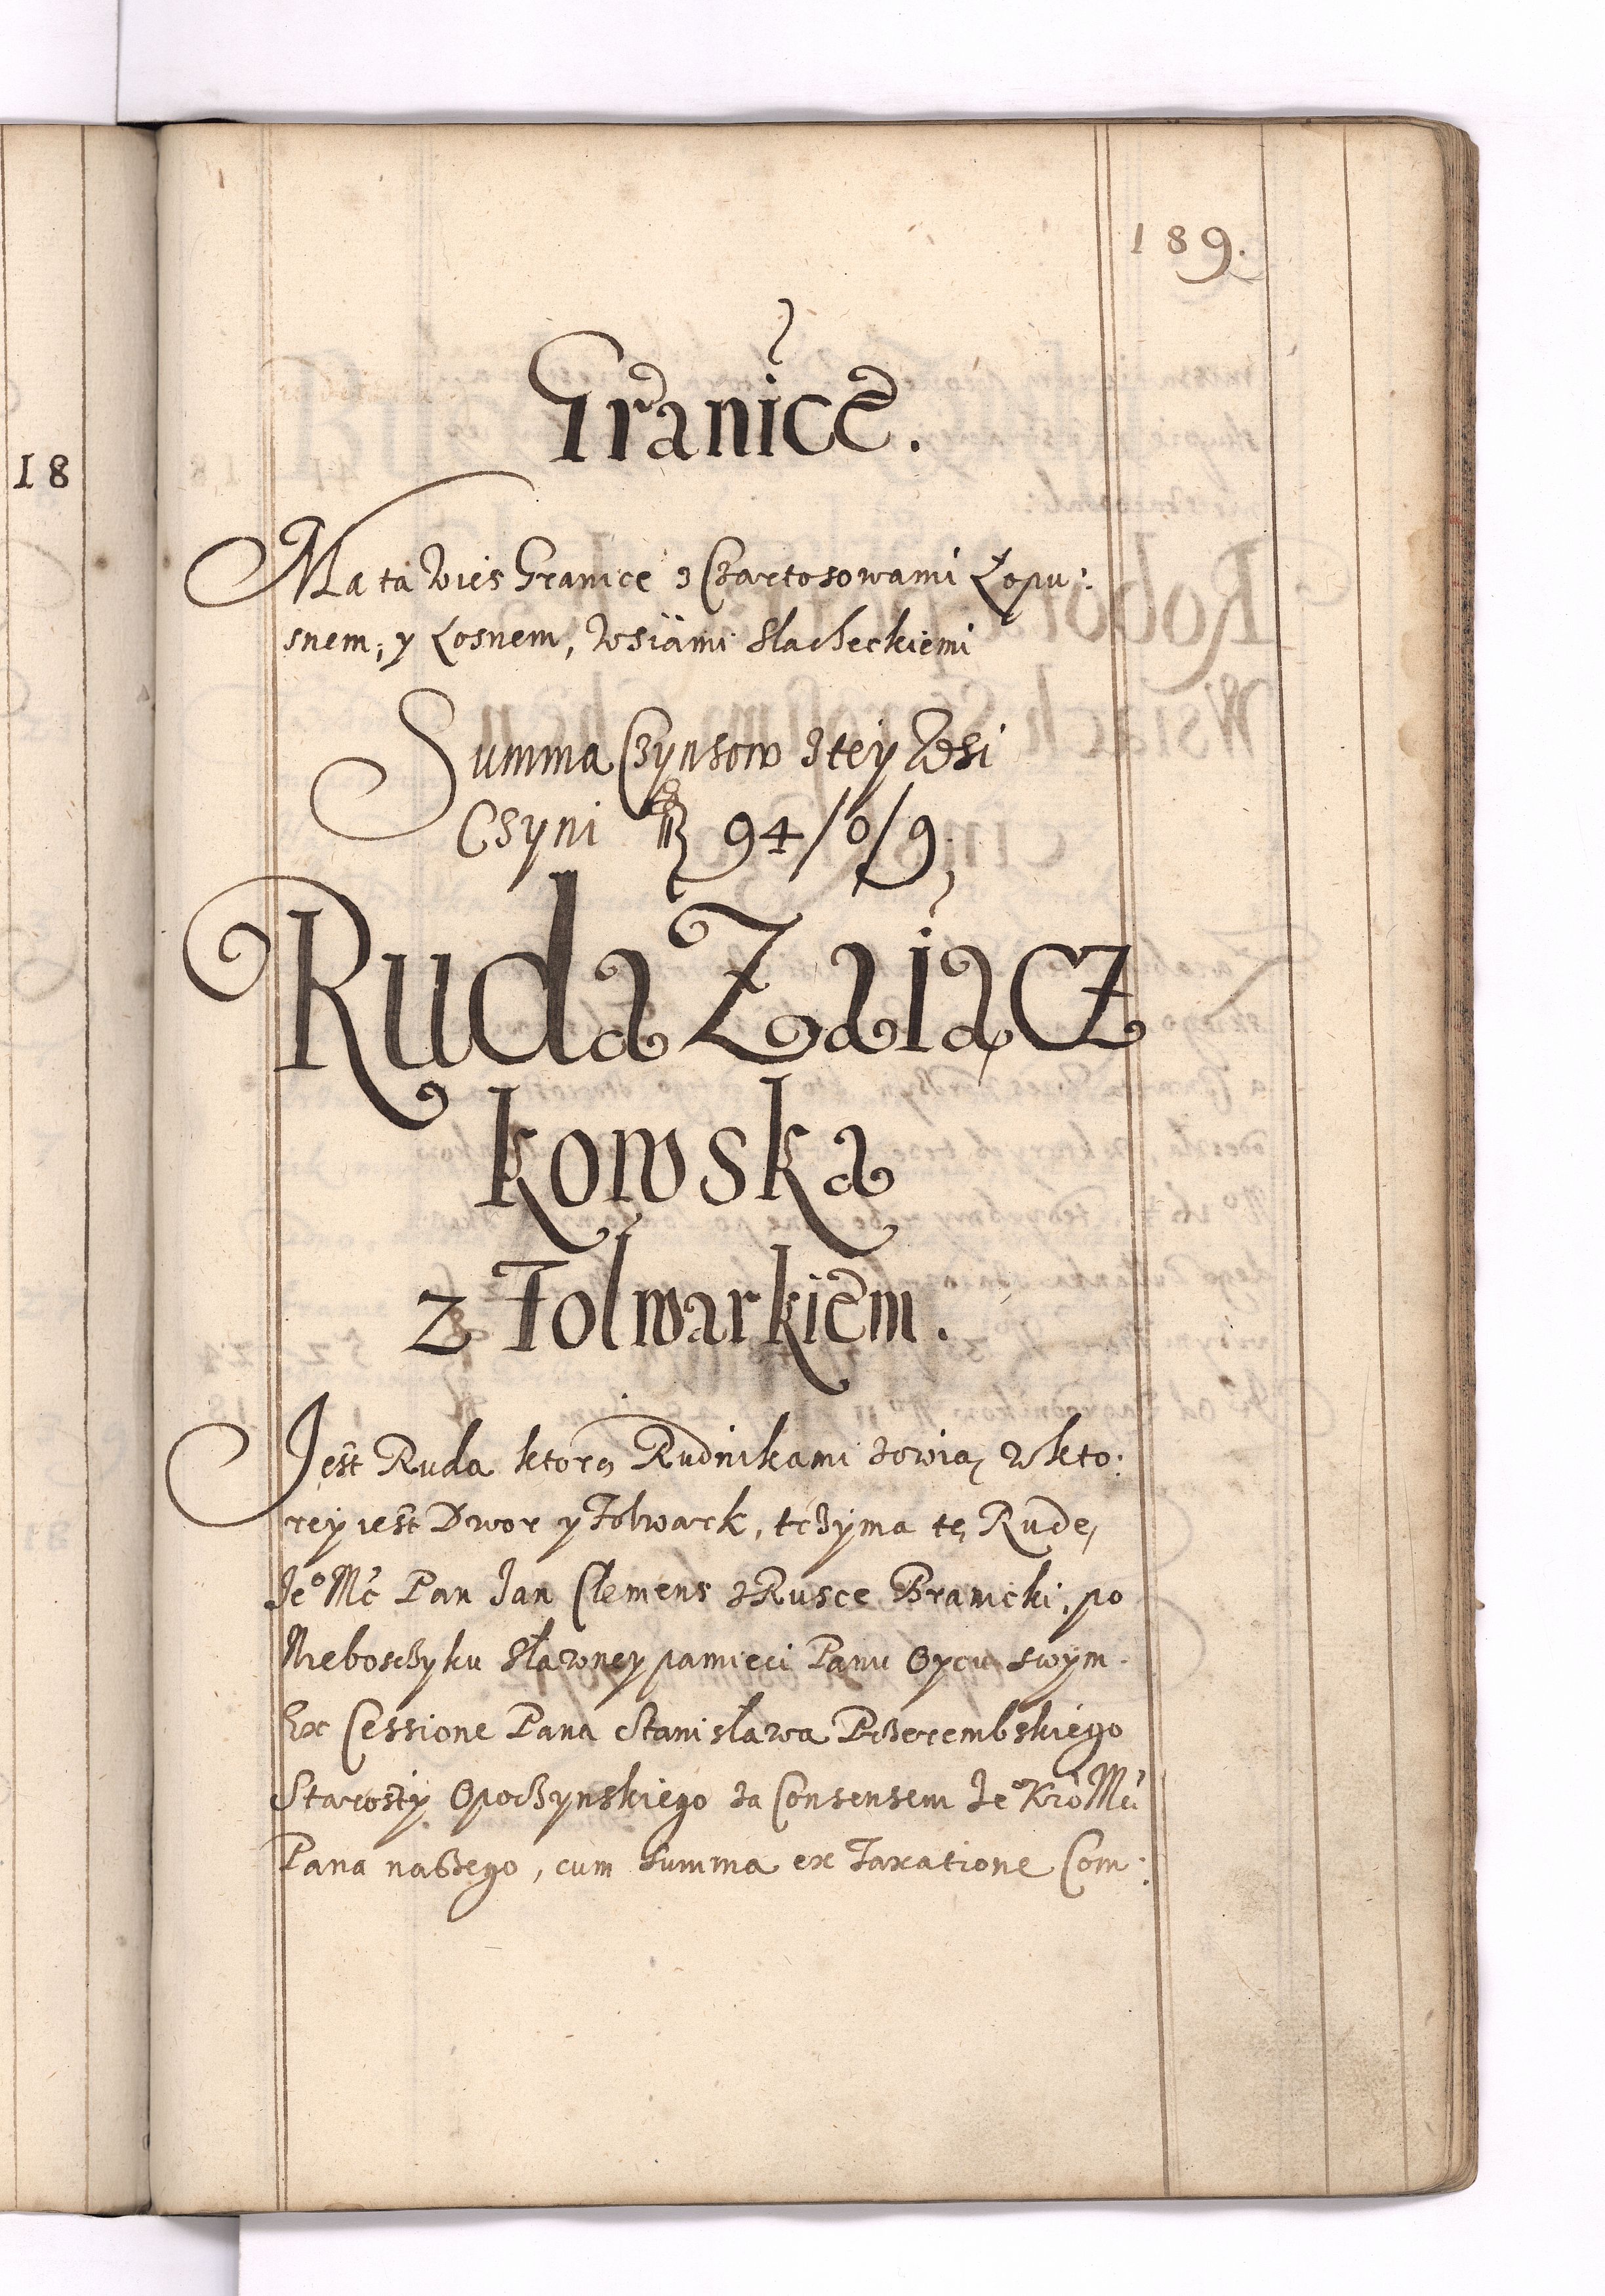 189.
18
Granice.
Ma ta Wies Granice z Czartosowami Łopu:
snem, y Łosnem, Wsiami Slacheckiemi
Summa Czynsow z tey Wsi
Czyni 94/0/9.
Ruda Zaiącz
kowska
z Folwarkiem.
Jest Ruda ktorą Rudnikami zowią, w kto:
rey iest Dwor y Folwark, trzyma tę Rudę,
Je° Mć Pan Jan Clemens z Rusce Branicki, po
Nieboszczyku Sławney pamięci Panu Oycu swym
Ex Cessione Pana Stanisława Przerembskiego
Starosty Opoczynskiego za Consensem Je° Kro Mći
Pana naszego, cum summa ex Taxatione Com: